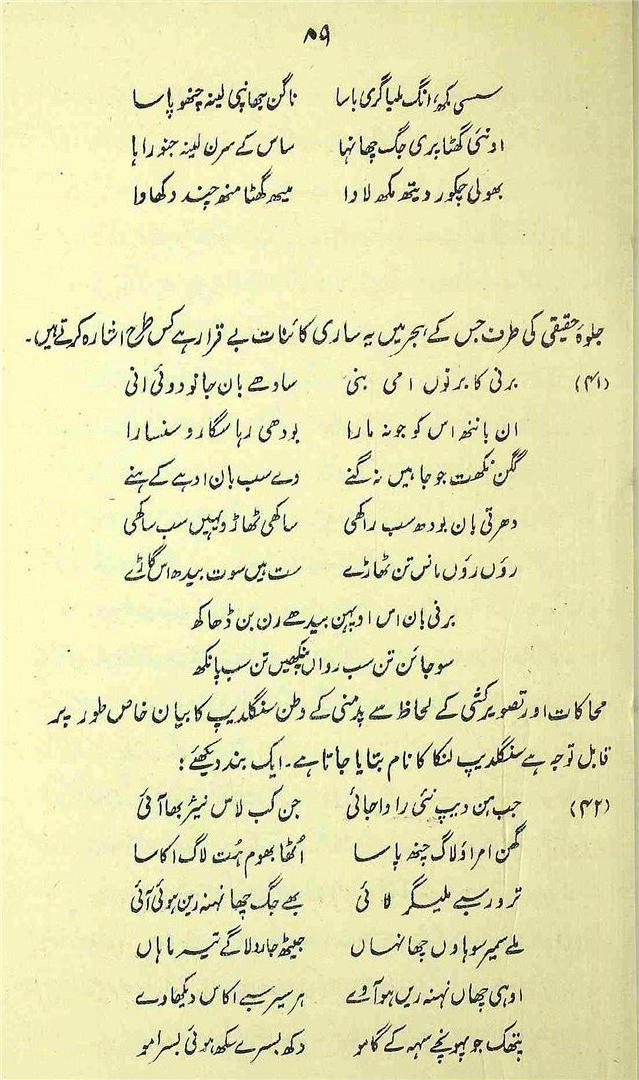 ۵۹
سسی مکھ، انگ ملیا گری باسا ناگن جھانپی لینہ چنھو پاسا
اونئی گھٹا پری جگ چھانہا ساس کے سرن لینہ جنو راہا
بھولی چکور دیتھ مکھ لاوا میھ گھٹا منھ چند دکھاوا
جلوۂ حقیقی کی طرف جس کے ہجر میں یہ ساری کائنات بے قرار ہے کس طرح اشارہ کرتے ہیں۔
(۴۱) برنی کا برنوں امی بنی سادھے بان جانو دوئی انی
ان بانٹھ اس کو جو نہ مارا بودھی رہا سگارو سنسارا
گگن نکھت جو جاہیں نہ گنے دے سب بان اوہے کے ہنے
دھرتی بان بودھ سب راکھی ساکھی ٹھاڑ دیہیں سب ساکھی
روں روں مانس تن ٹھاڑے ست ہیں سوت بیدھ اس گاڑے
برنی بان اس اوپہن بیدھے رن بن ڈھاکھ
سو جائن تن سب رواں پنکھیں تن سب پانکھ
محاکات اور تصویر کشی کے لحاظ سے پدمنی کے وطن سنگلدیپ کا بیان خاص طور پر
قابل توجہ ہے سنگلدیپ لنکا کا نام بتایا جاتا ہے۔ ایک بند دیکھئے:
(۴۲) جب ہن دیپ نئی راوا جائی جن کب لاس نیئر بھا آئی
گھن امراؤ لاگ چنھ پاسا اُٹھا بھوم ہُت لاگ اکاسا
تروو سبے ملیگر لائی بھے جگ چھانہنہ رین ہوئی آئی
ملے سمیر سوہاوں چھانہاں جیٹھ جاڑ لاگے تیہ ماہاں
اوہی چھاں نہنہ ریں ہو آوے ہر سیر سبے اکاس دیکھاوے
پنتھک جو پہونچے سہہ کے گامو دکھ بسرے سکھ ہوئی بسرامو